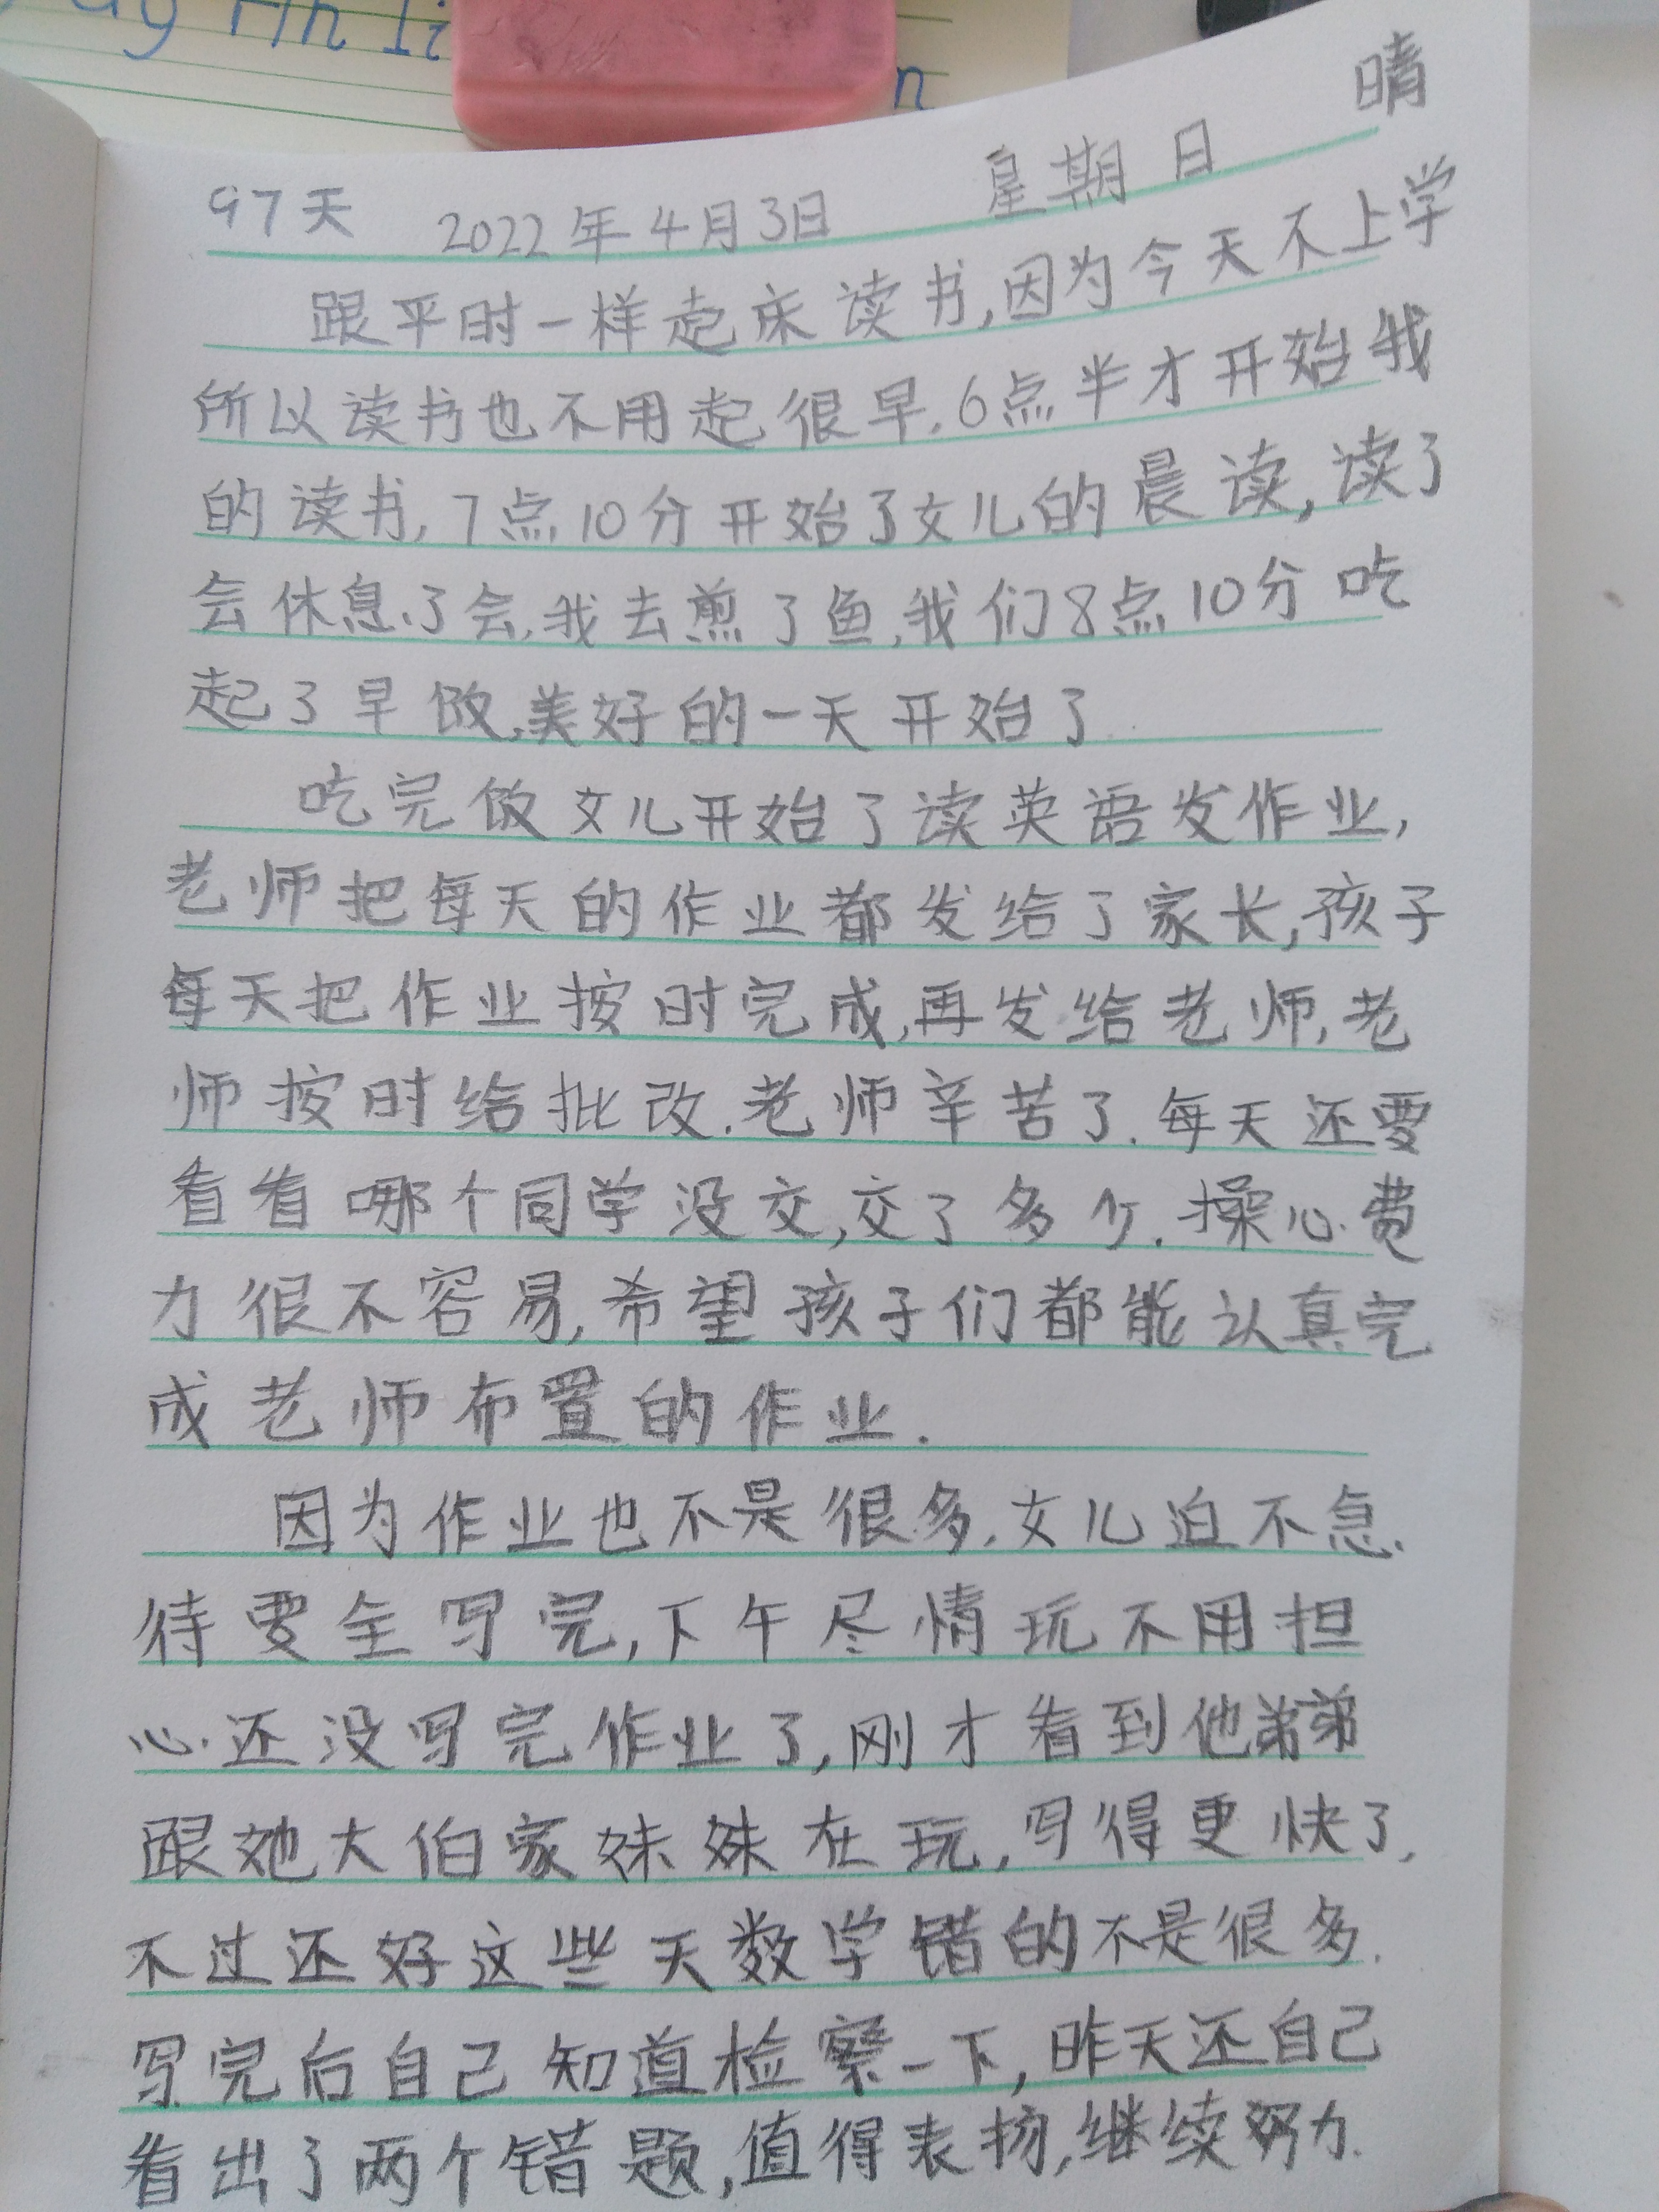 97天 2022年4月3日 星期日 晴
跟平时一样起床读书,因为今天不上学
所以读书也不用起很早.6点半才开始我
的读书,7点10分开始了女儿的晨读,读了
会休息了会,我去煎了鱼,我们8点10分吃
起了早饭,美好的一天开始了
吃完饭女儿开始了读英语发作业,
老师把每天的作业都发给了家长,孩子
每天把作业按时完成,再发给老师,老
师按时给批改.老师辛苦了.每天还要
看看哪个同学没交,交了多少.操心费
力很不容易,希望孩子们都能认真完
成老师布置的作业.
因为作业也不是很多.女儿迫不急
待要全写完,下午尽情玩不用担
心还没写完作业了,刚才看到他弟弟
跟她大伯家妹妹在玩,写得更快了,
不过还好这些天数学错的不是很多.
写完后自己知道检察一下,昨天还自己
看出了两个错题,值得表扬,继续努力.